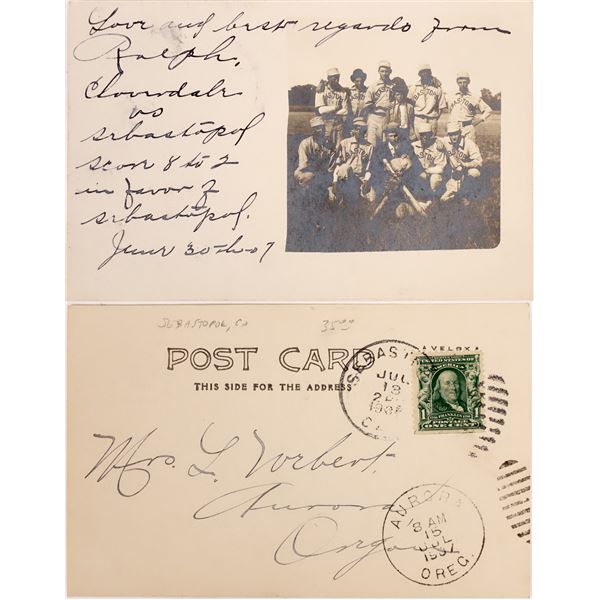 Love and best regards from
Ralph,
Cloverdale
vs
Sebastopol
score 8 to 2
in favor of
Sebastopol.
June 30th-07
SEBASTOPOL, CA
35⁰⁰
POST CARD
THIS SIDE FOR THE ADDRESS
VELOX
SEBASTO
JUL
13
190
CAL
UNITED STATES OF
AMERICA
1 1
FRANKLIN
POSTAGE
ONE CENT
Mrs. L.
Aurora
Oregon
AURORA
8 AM
15
JUL
1907
OREG.